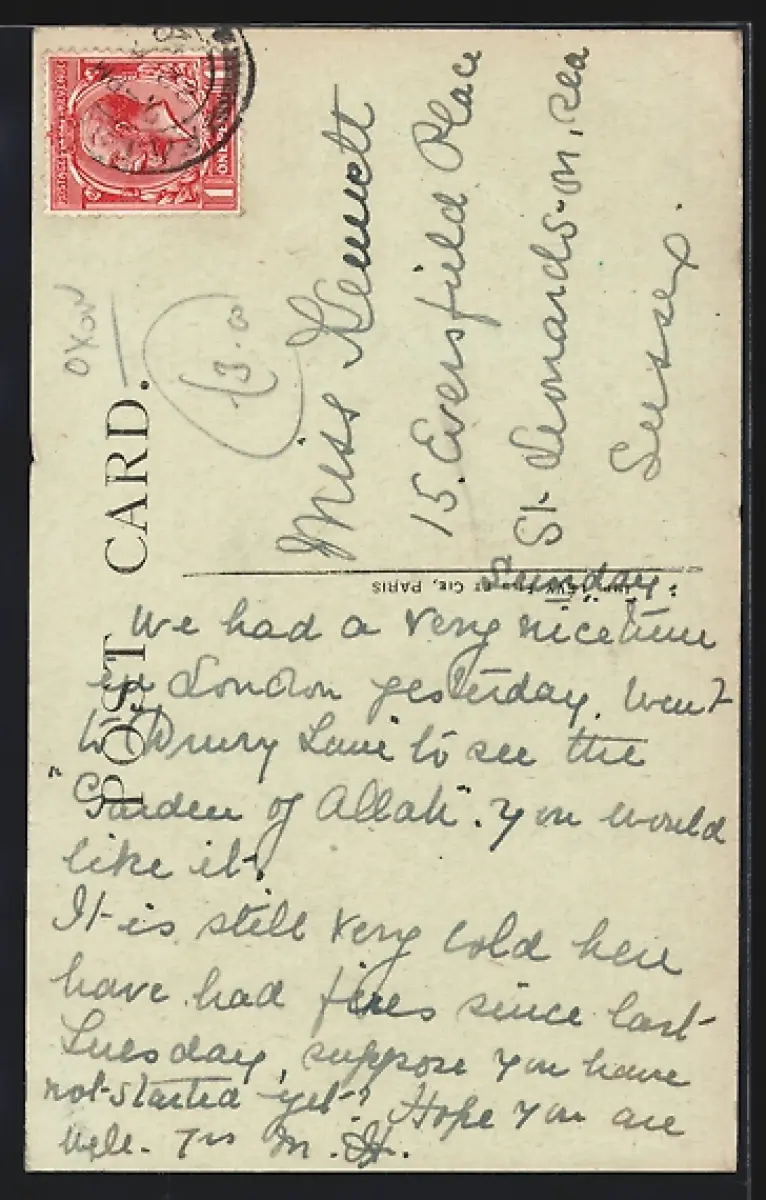 POSTAGE REVENUE
ONE
1
OXON
£3.00
POST CARD.
Miss Hewett
15. Eversfield Place
St Leonards-on, Sea
Sussex.
CIE, PARIS
Sunday.
We had a very nice time
in London yesterday. Went
to Drury Lane to see the
"Garden of Allah". You would
like it.
It is still very cold here
have had fires since last
Tuesday, suppose you have
not started yet? Hope you are
well. Yrs M. H.